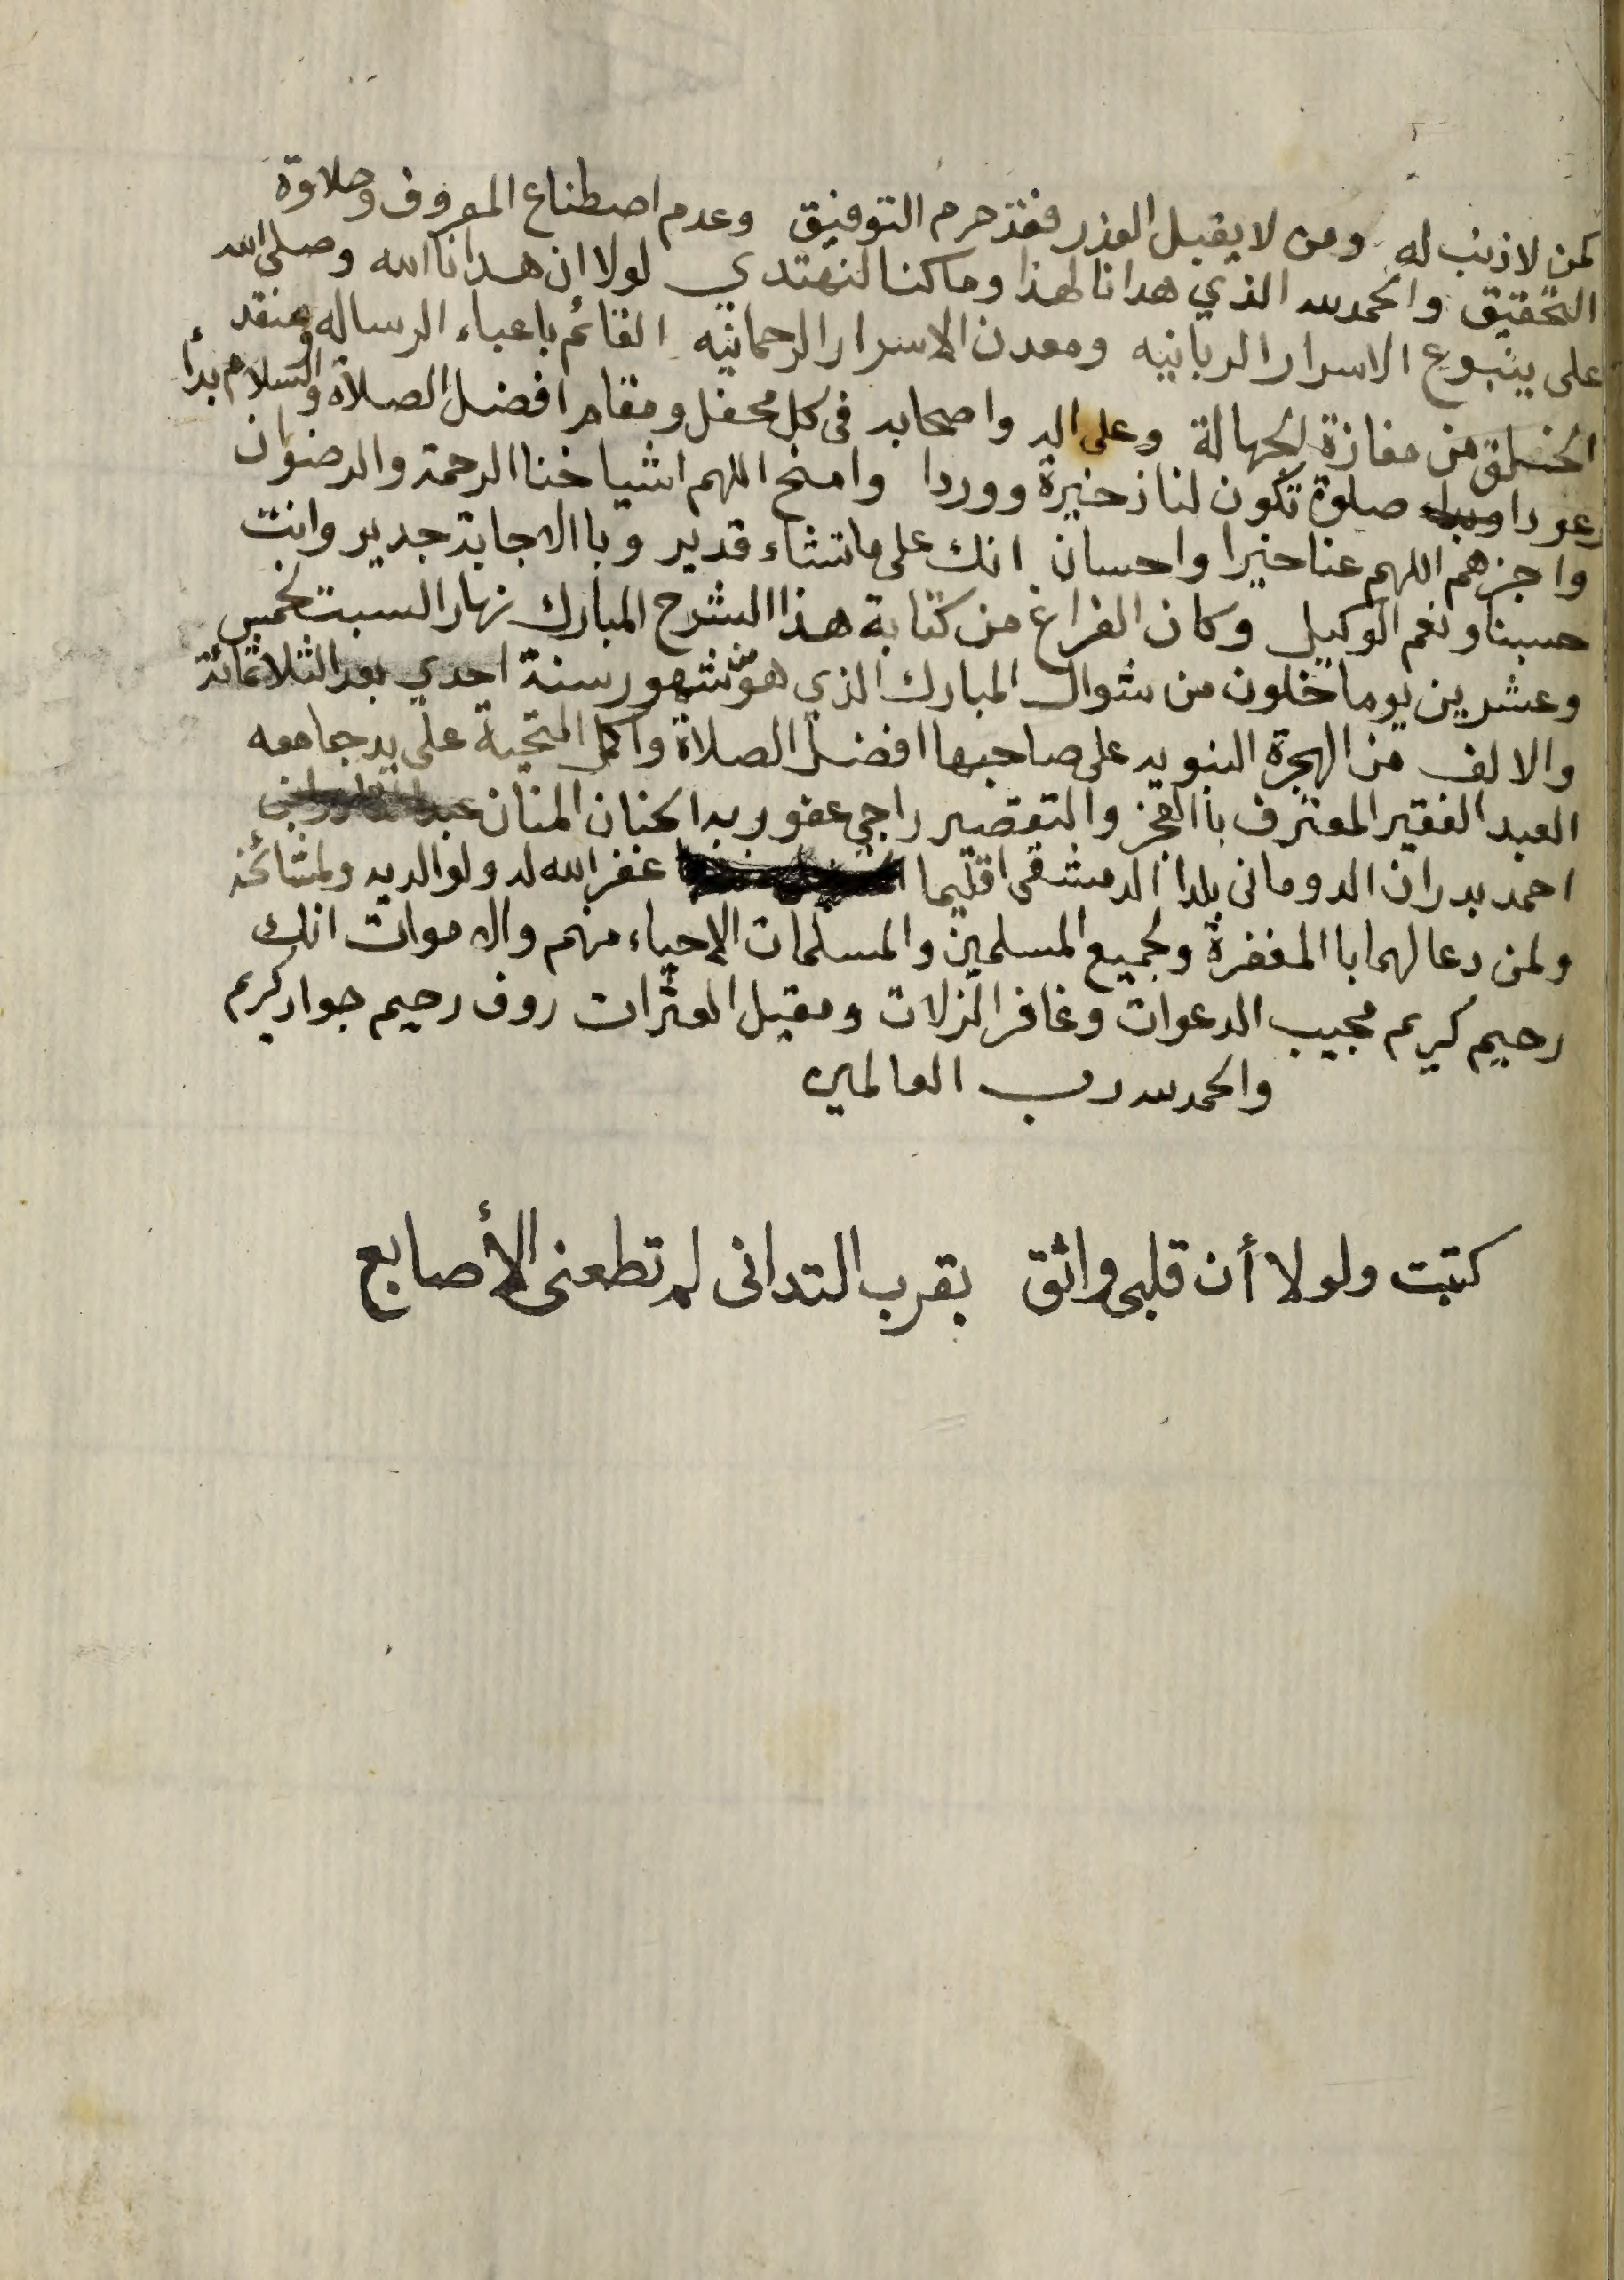 كمن لا ذنب له ومن لا يقبل العذر فقد حرم التوفيق وعدم اصطناع المعروف وحلاوة
التحقيق والحمد لله الذي هدانا لهذا وما كنا لنهتدي لولا ان هدانا الله وصلى الله
على ينبوع الاسرار الربانيه ومعدن الاسرار الرحمانيه القائم باعباء الرساله ومنقذ
الخلق من مفازة الجهالة وعلى اله واصحابه في كل محفل ومقام افضل الصلاة والسلام بدأ
وعودا صلوة تكون لنا ذخيرة ووردا وامنح اللهم اشياخنا الرحمة والرضوان
واجزهم اللهم عنا خيرا واحسان انك على ما تشاء قدير وباالاجابة جدير وانت
حسبنا ونعم الوكيل وكان الفراغ من كتابة هذا الشرح المبارك نهار السبت لخمس
وعشرين يوما خلون من شوال المبارك الذي هو من شهور سنة احدي بعد الثلاثمائة
والالف من الهجرة النبويه على صاحبها افضل الصلاة واكمل التحية على يد جامعه
العبد الفقير المعترف باالعجز والتقصير راجي عفو ربه الحنان المنان
احمد بدران الدوماني بلدا الدمشقي اقليما غفر الله له ولوالديه ولمشائخه
ولمن دعا لهما باالمغفرة ولجميع المسلمين والمسلمات الاحياء منهم والاموات انك
رحيم كريم مجيب الدعوات وغافر الزلات ومقيل العثرات روف رحيم جواد كريم
والحمد لله رب العالمين
كتبت ولولا أن قلبي واثق بقرب التداني لم تطعني الأصابع